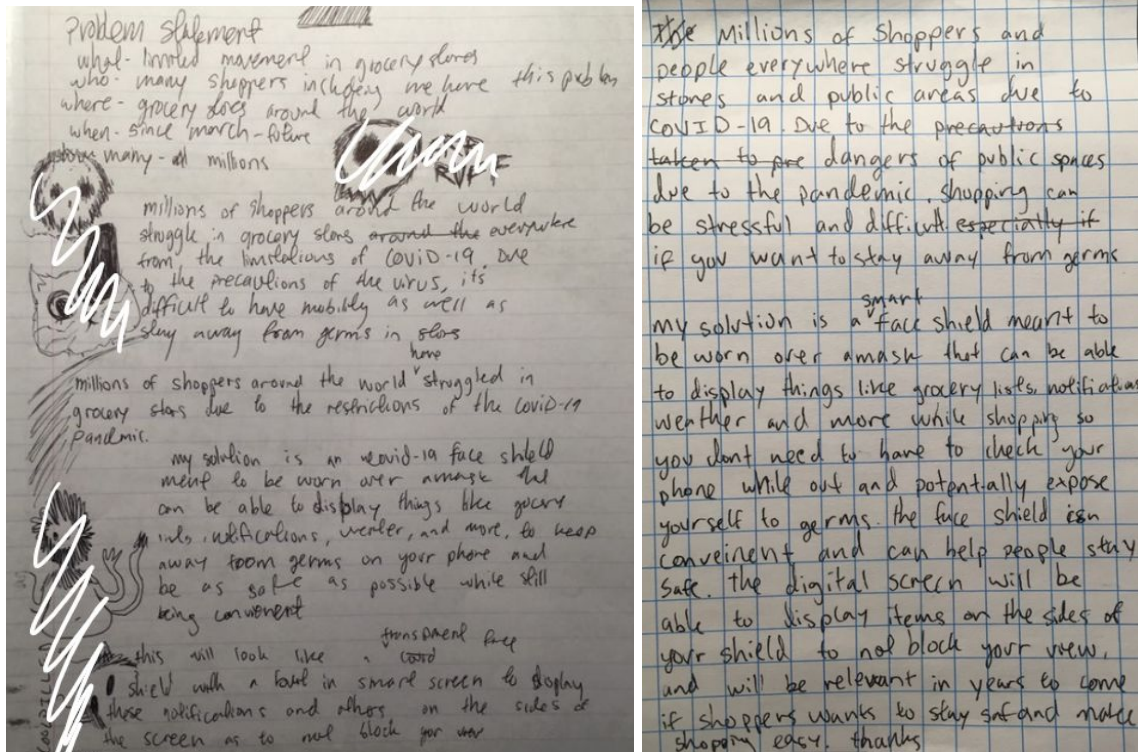 Problem statement
what - limited movement in grocery stores
who - many shoppers including me have this problem
where - grocery stores around the world
when - since march - future
how many - millions
millions of shoppers around the world
struggle in grocery stors around the everywhere
from the limitations of COVID-19. Due
to the precautions of the virus, its
difficult to have mobility as well as
stay away from germs in stors
millions of shoppers around the world have struggled in
grocery stors due to the restrictions of the COVID-19
pandemic.
my solution is an covid-19 face shield
ment to be worn over a mask that
can be able to display things like grocery
notifications, weather, and more, to keep
away from germs on your phone and
be as safe as possible while still
being convienent
this will look like a transparent face
shield with a built in smart screen to display
these notifications and others on the sides of
the screen as to not block your view
The Millions of shoppers and
people everywhere struggle in
stores and public areas due to
COVID-19. Due to the precautions
taken to pre dangers of public spaces
due to the pandemic, shopping can
be stressful and difficult especially if
if you want to stay away from germs
my solution is a smart face shield meant to
be worn over a mask that can be able
to display things like grocery lists, notification
weather and more while shopping so
you dont need to have to check your
phone while out and potentially expose
yourself to germs. the face shield is
conveinent and can help people stay
safe. the digital screen will be
able to display items on the sides of
your shield to not block your view,
and will be relevant in years to come
if shoppers wants to stay saf and make
shopping easy. thanks